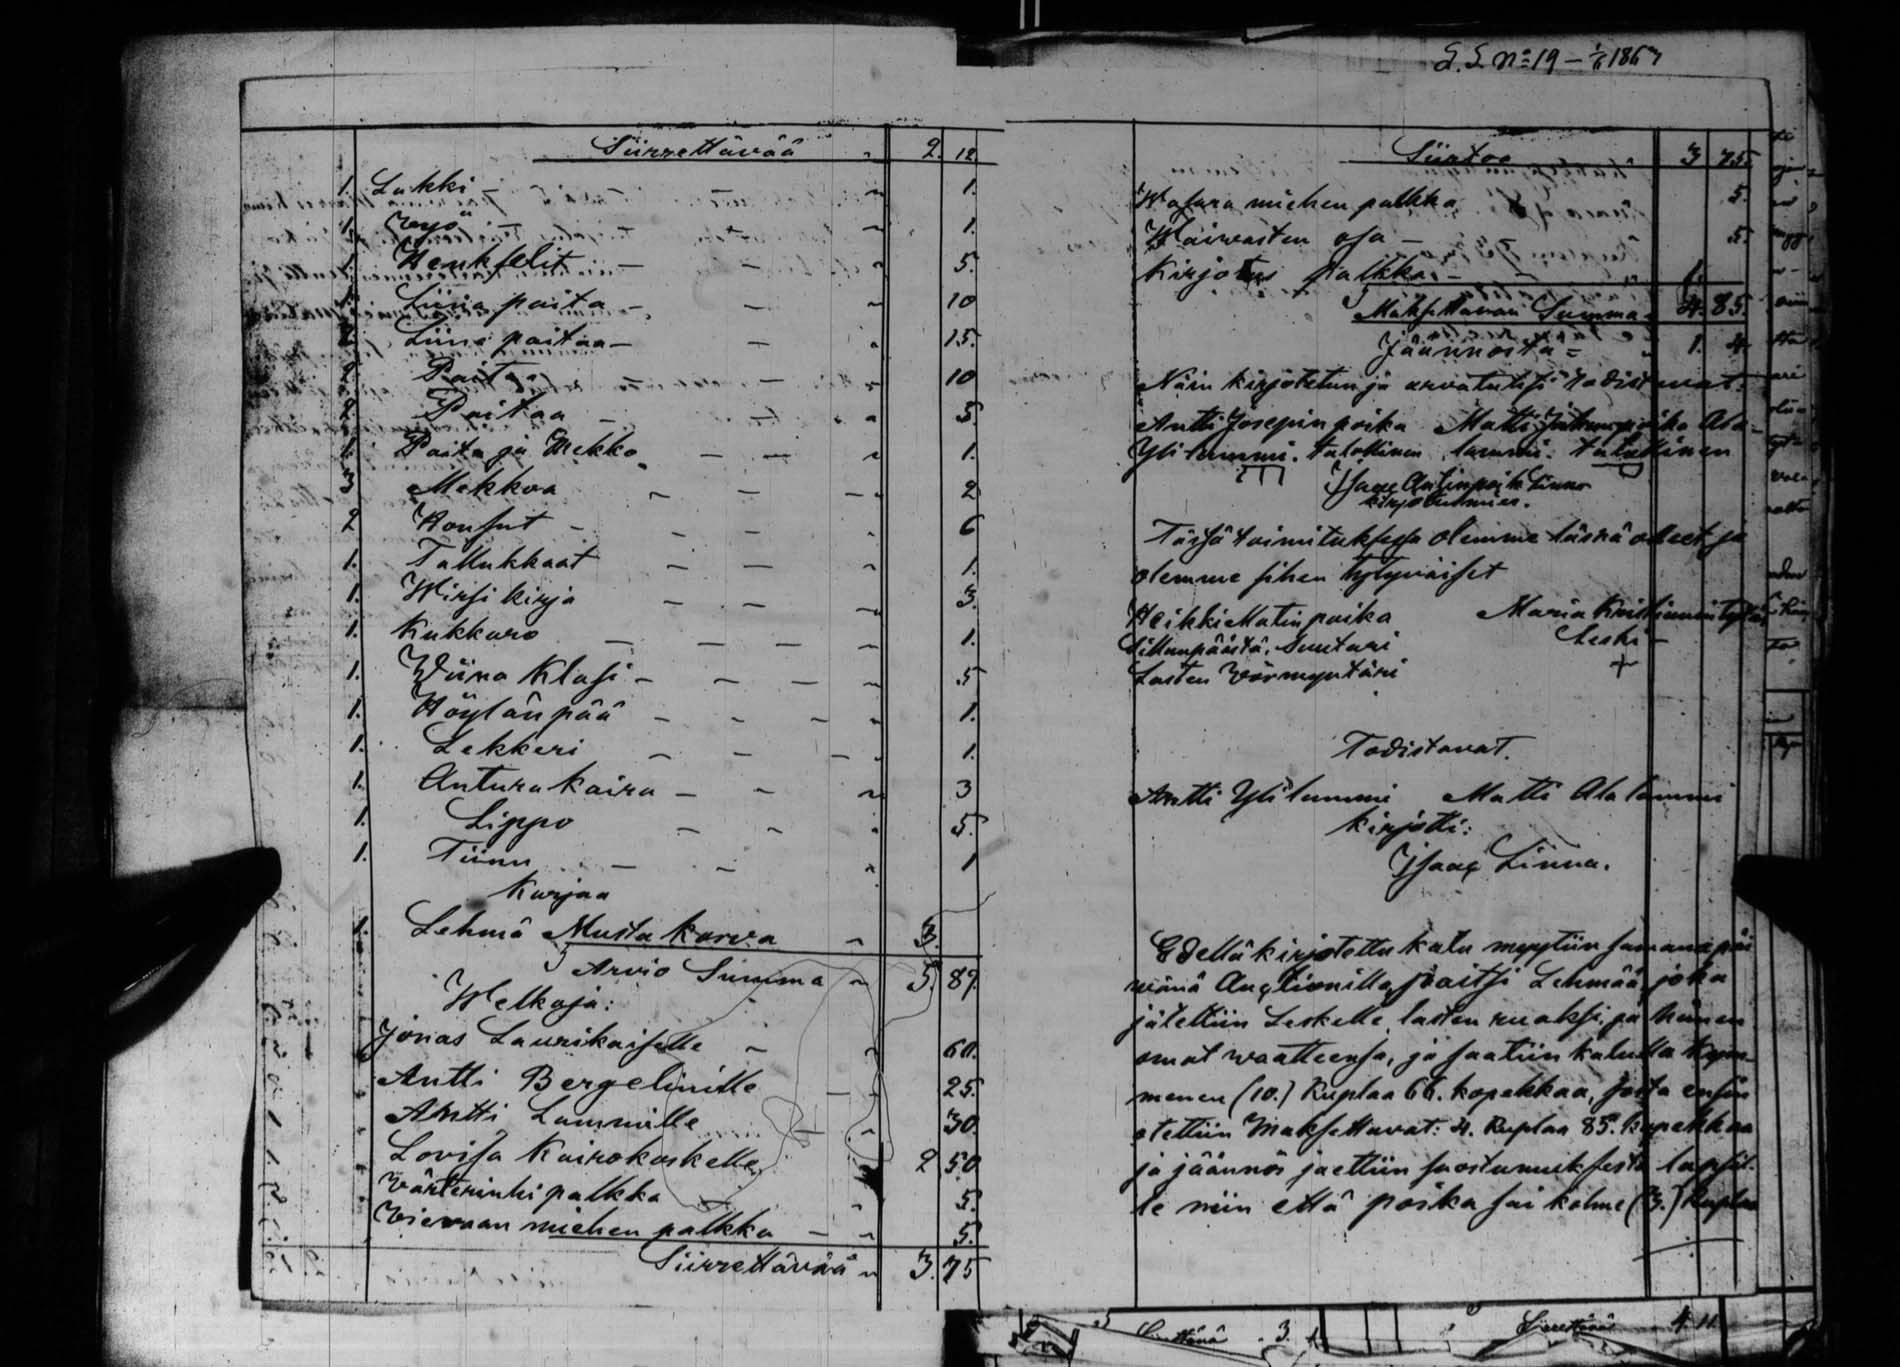 S. S. No 19 – 1/6 1867
Siirrettävää " 2. 12.
1. Lakki – " 1.
1. Wyö – " 1.
1. Henkselit – – " 5.
1. Liina paita – – " 10
2. Liina paitaa – – " 15.
2. Paitaa – – " 10
2. Paitaa – – " 5.
1. Paita ja Mekko – – " 1.
3 Mekkoa – – – " 2
2 Housut – – – " 6
1. Tallukkaat – – – " 1.
1. Wirsi kirja – – – " 3.
1. Kukkaro – – – – " 1.
1. Wiina Klasi – – – – " 5
1. Höylän pää – – – " 1.
1. Lekkeri – – – " 1.
1. Antura kaira – – " 3
1. Lippo – – " 5.
1. Tiinu – – " 1
Karjaa
1. Lehmä Musta korva " 3.
Arvio Summa " 5. 87.
Welkoja:
Jonas Laurikaiselle – " 60.
Antti Bergelinille – " 25.
Antti Lammille " 30.
Lovisa Kairokoskelle " 2 50
Wärterinki palkka " 5.
Vieraan miehen palkka – " 5.
Siirrettävää " 3. 75
Siirtoa 3 75.
Wasara miehen palkka 5.
Waivasten osa – 5.
Kirjotus palkka – – 1.
Maksettavan Summa 4. 85.
Jäännöstä = 1. 4
Näin kirjotetun ja arvatuksi todistavat:
Antti Josepin poika Matti Juhanpoika Ala-
Yli lammi. talollinen lammi. talollinen
Isaac Antinpoik Linna
kirjoitusmies.
Tässä toimituksessa olemme läsnä olleet ja
olemme siihen tytyväiset
Heikki Matin poika Maria Kristianintytär
Sillanpäästä, Suutari Leski –
Lasten Vörmyntäri +
Todistavat.
Antti Yli lammi Matti Ala lammi
Kirjotti:
Isaac Linna.
Edellä kirjotettu kalu myytiin samana päi
vänä Auctionilla, paitsi Lehmää, joka
jätettiin Leskelle, lasten ruaksi, ja hänen
omat waatteensa, ja saatiin kalulla kym-
menen (10.) Ruplaa 66. kopekkaa, josta ensin
otettiin Maksettavat: 4. Ruplaa 85. kopekkaa
ja jäännös jaettiin suostumuksesta lapsil-
le niin että poika sai kolme (3.) Ruplaa
Siirettävä 3.
Siirettävää 4. 11